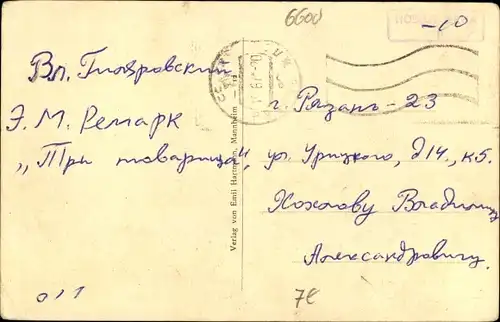 6600
-.0
Вл. Гиляровский
Э. М. Ремарк
„Три товарища",
Verlag von Emil Hartmann, Mannheim
г. Рязань-23
ул. Урицкого, д14., к5.
Хохлову Владимиру
Александровичу.
7€